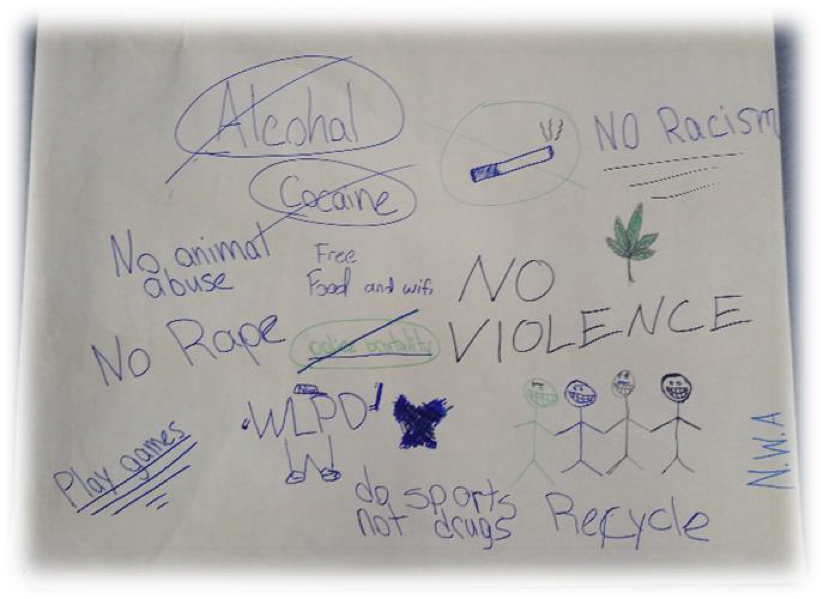 Alcohol
NO Racism
Cocaine
No animal
abuse
Free
Food and wifi
NO
VIOLENCE
No Rape
police brutality
WLPD
Play games
do sports
not drugs
Recycle
N.W.A